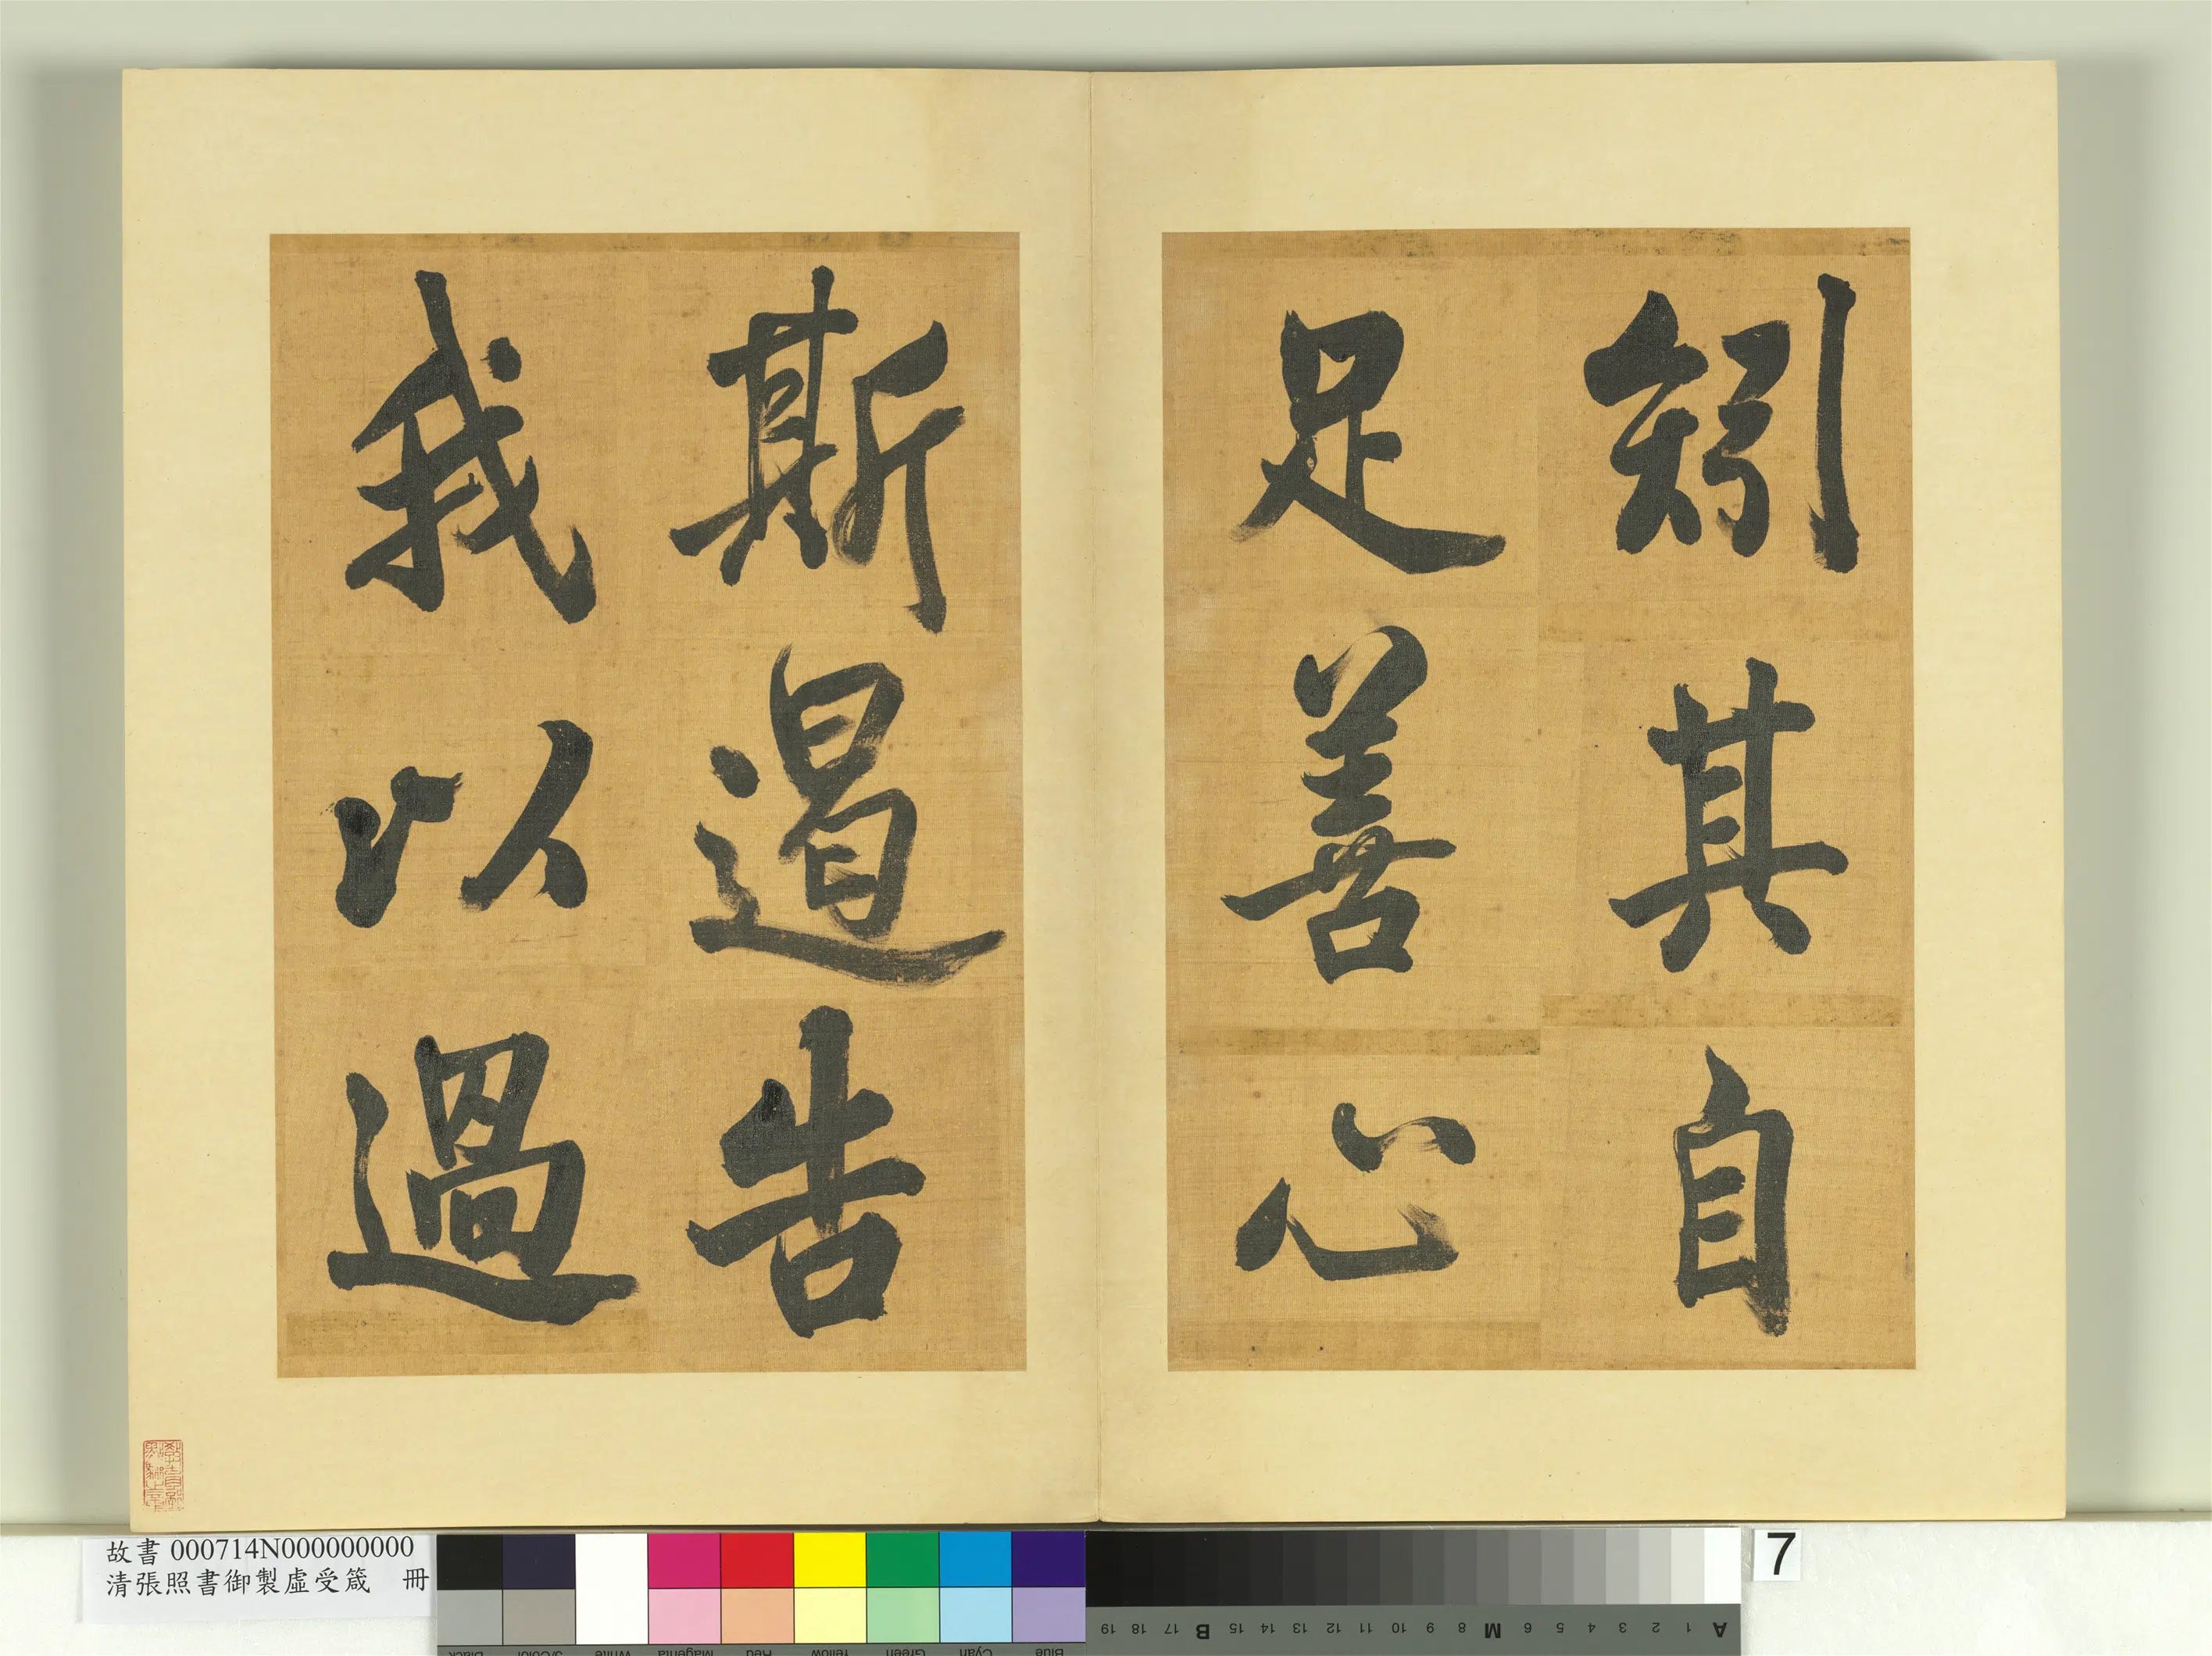 矧其自
足善心
斯遏告
我以過
故書 000714N000000000
清張照書御製虛受箴 冊
7
Black 3/Color White Magenta Red Yellow Green Cyan Blue
19 18 17 B 16 15 14 13 12 11 10 9 8 M 7 6 5 4 3 2 1 A